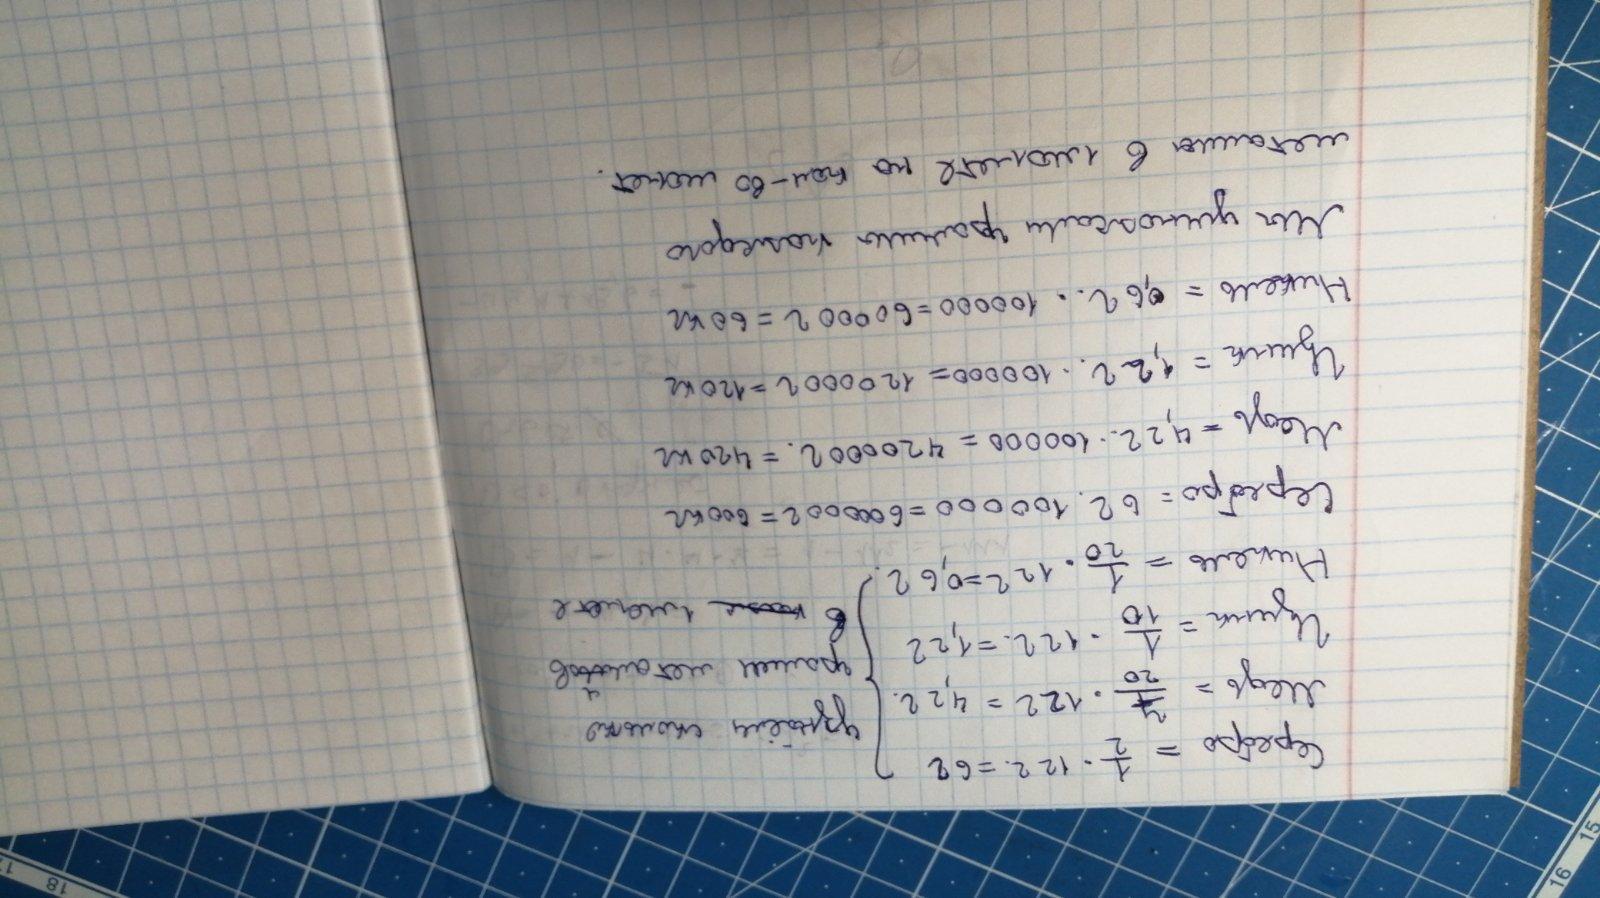 Серебро = 1/2 · 12г. = 6г
Медь = 7/20 · 12г = 4,2г.
Цинк = 1/10 · 12г. = 1,2г
Никель = 1/20 · 12г = 0,6г.
узнаём сколько
грамм металлов
в 1 монете
Серебро = 6г. 100000 = 600000г = 600кг
Медь = 4,2г. · 100000 = 420000г. = 420кг
Цинк = 1,2г. · 100000 = 120000г = 120кг
Никель = 0,6г. · 100000 = 60000г = 60кг
Мы умножали граммы каждого
металла в 1 монете на кол-во монет.
15
16
17
18